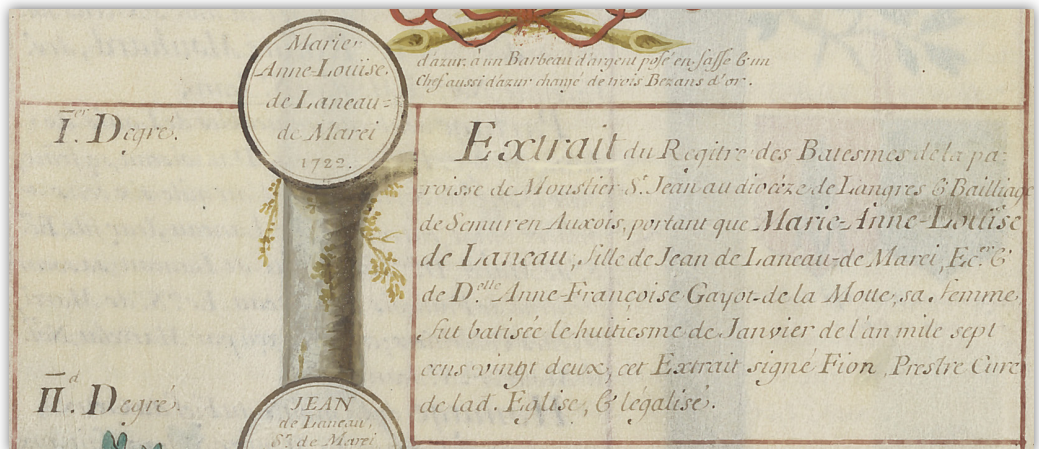 Marie-
Anne-Louise
de Laneau-
de Marei
1722.
d'azur, à un Barbeau d'argent posé en-fasse & un
Chef aussi d'azur chargé de trois Bezans d'or.
I.er Degré.
Extrait du Regitre des Batesmes de la pa-
roisse de Moustier S.t Jean au diocèze de Langres & Bailliage
de Semur en Auxois, portant que Marie-Anne-Louise
de Laneau, fille de Jean de Laneau-de Marei, Ec.er &
de D.elle Anne-Françoise Gayot-de la Motte, sa femme,
fut batisée le huitiesme de Janvier de l'an mile sept
cens vingt deux, cet Extrait signé Fion, Prestre Curé
de lad. Eglise, & légalisé.
II.d Degré.
JEAN
de Laneau,
S.r de Marei